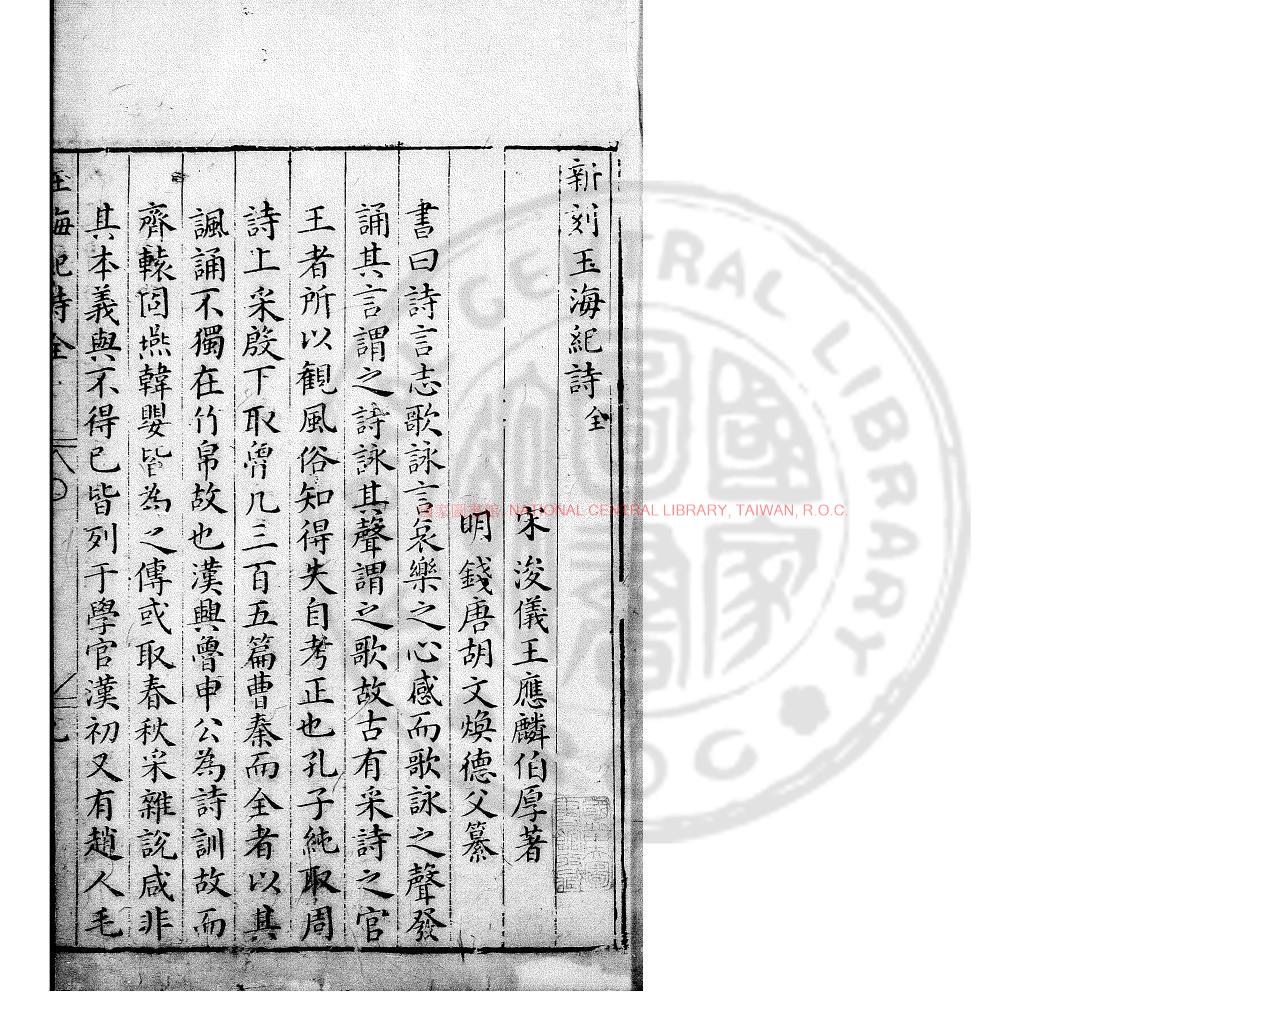 新刻玉海紀詩全
宋浚儀王應麟伯厚著
明錢唐胡文煥德父纂
書曰詩言志歌詠言哀樂之心感而歌詠之聲發
誦其言謂之詩詠其聲謂之歌故古有采詩之官
王者所以觀風俗知得失自考正也孔子純取周
詩上采殷下取魯凡三百五篇曹秦而全者以其
諷誦不獨在竹帛故也漢興魯申公為詩訓故而
齊轅固燕韓嬰皆為之傳或取春秋采雜說咸非
其本義與不得已皆列于學官漢初又有趙人毛
玉海紀詩全
國家圖書館 NATIONAL CENTRAL LIBRARY, TAIWAN, R.O.C.
國家圖書
CENTRAL LIBRARY